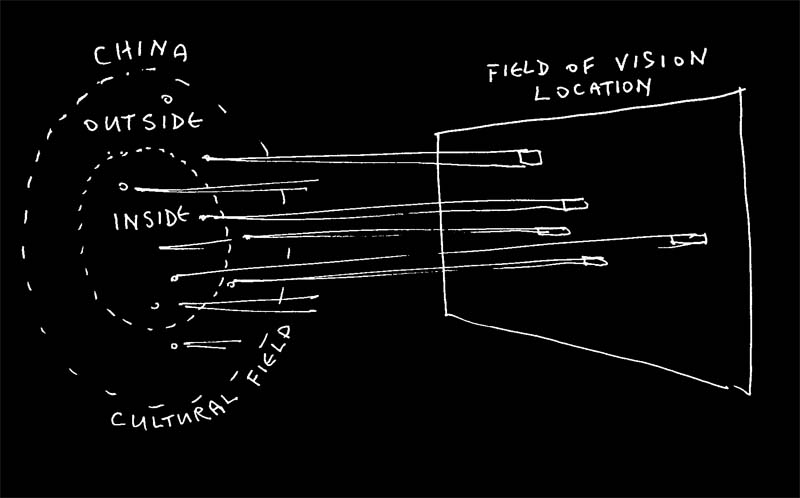 CHINA
OUTSIDE
INSIDE
CULTURAL FIELD
FIELD OF VISION
LOCATION